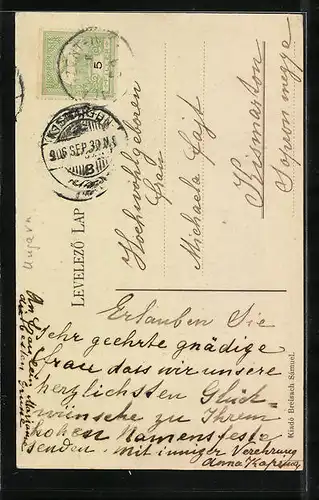 5
KISMARTON
906 SEP. 30
B
LEVELEZŐ LAP
Ungarn
Hochwohlgeboren
Frau
Michaela Gajt
Kismarton
Sopron megye
Erlauben Sie
sehr geehrte gnädige
Frau dass wir unsere
herzlichsten Glück-
wünsche zu Ihrem
hohen Namensfeste
senden. Mit inniger Verehrung
Anna
An Frau
die besten
Kiadó Breisach Sámuel.